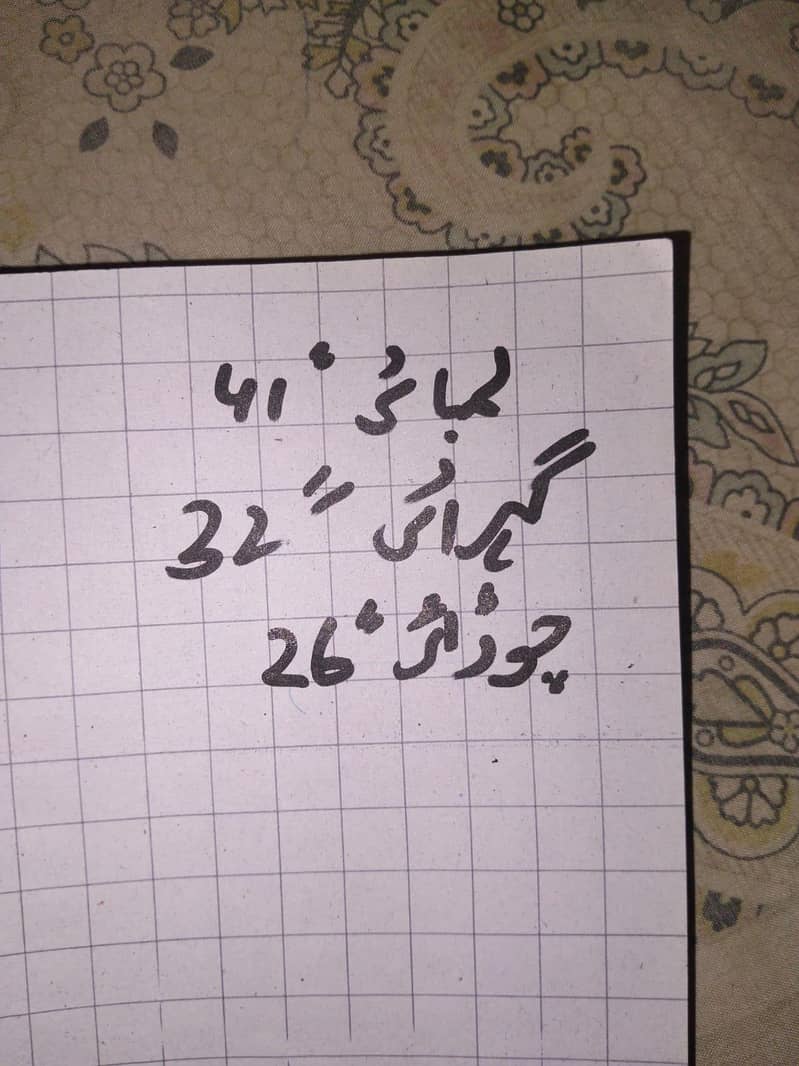 لمبائی "41
گہرائی "32
چوڑائی "26